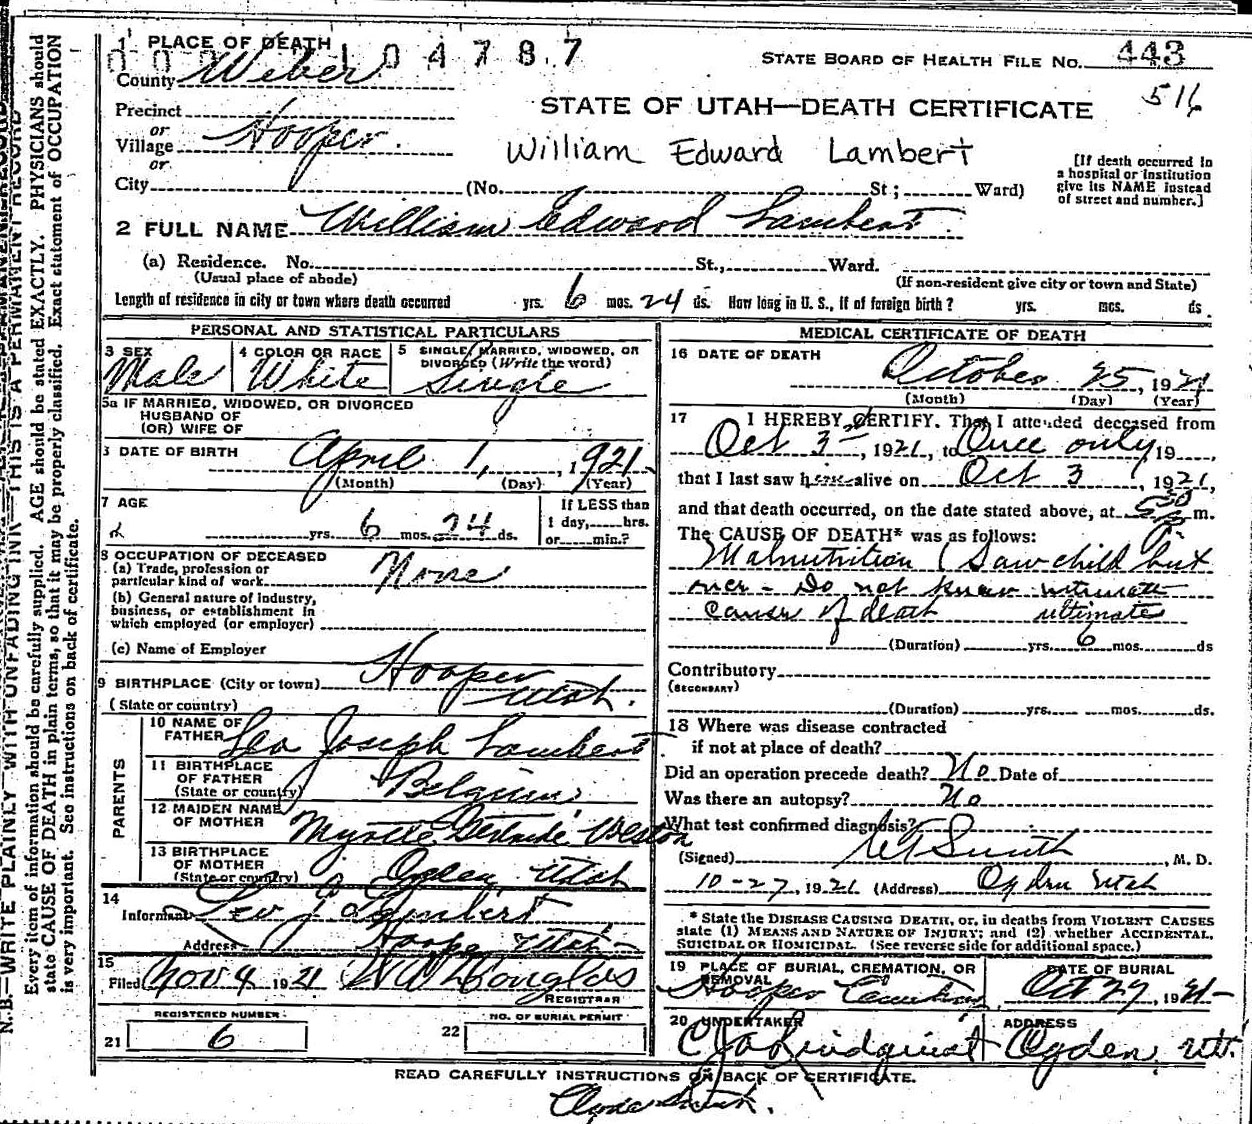 1 PLACE OF DEATH
104787
STATE BOARD OF HEALTH FILE NO. 443
County Weber
516
STATE OF UTAH—DEATH CERTIFICATE
Precinct
or
Village Hooper.
or
William Edward Lambert
[If death occurred in a hospital or institution give its NAME instead of street and number.]
City (No. St; Ward)
2 FULL NAME William Edward Lambert.
(a) Residence. No. St., Ward.
(Usual place of abode) (If non-resident give city or town and State)
Length of residence in city or town where death occurred yrs. 6 mos. 24 ds. How long in U. S., if of foreign birth? yrs. mos. ds.
PERSONAL AND STATISTICAL PARTICULARS
3 SEX
Male
4 COLOR OR RACE
White
5 SINGLE, MARRIED, WIDOWED, OR DIVORCED (Write the word)
Single
5a IF MARRIED, WIDOWED, OR DIVORCED
HUSBAND OF
(OR) WIFE OF
DATE OF BIRTH April 1, 1921
(Month) (Day) (Year)
7 AGE
yrs. 6 mos. 24 ds.
If LESS than
1 day, hrs.
or min.?
8 OCCUPATION OF DECEASED
(a) Trade, profession or
particular kind of work None
(b) General nature of industry,
business, or establishment in
which employed (or employer)
(c) Name of Employer
9 BIRTHPLACE (City or town) Hooper
(State or country) Utah.
PARENTS
10 NAME OF
FATHER Leo Joseph Lambert
11 BIRTHPLACE
OF FATHER
(State or country) Belgium
12 MAIDEN NAME
OF MOTHER Myrtle Gertrude Weston
13 BIRTHPLACE
OF MOTHER
(State or country) Ogden, Utah
14
Informant Leo J Lambert
Address Hooper Utah
15
Filed Nov 4 1921 W W Douglas
REGISTRAR
REGISTERED NUMBER
21 6
NO. OF BURIAL PERMIT
22
MEDICAL CERTIFICATE OF DEATH
16 DATE OF DEATH
October 25, 1921
(Month) (Day) (Year)
17 I HEREBY CERTIFY. That I attended deceased from
Oct 3, 1921, to Once only 19
that I last saw him alive on Oct 3, 1921,
and that death occurred, on the date stated above, at m.
The CAUSE OF DEATH* was as follows:
Malnutrition (Saw child but
once - Do not know
cause of death ultimate
(Duration) yrs. 6 mos. ds
Contributory
(SECONDARY)
(Duration) yrs. mos. ds.
18 Where was disease contracted
if not at place of death?
Did an operation precede death? No Date of
Was there an autopsy? No
What test confirmed diagnosis?
(Signed) Smith, M. D.
10-27, 1921 (Address) Ogden Utah
* State the DISEASE CAUSING DEATH, or, in deaths from VIOLENT CAUSES
state (1) MEANS AND NATURE OF INJURY; and (2) whether ACCIDENTAL,
SUICIDAL OR HOMICIDAL. (See reverse side for additional space.)
19 PLACE OF BURIAL, CREMATION, OR
REMOVAL
Hooper Cemetery
DATE OF BURIAL
Oct 27, 1921
20 UNDERTAKER
Lindquist
ADDRESS
Ogden, Ut.
READ CAREFULLY INSTRUCTIONS ON BACK OF CERTIFICATE.
N.B.—WRITE PLAINLY WITH UNFADING INK—THIS IS A PERMANENT RECORD
Every item of information should be carefully supplied. AGE should be stated EXACTLY. PHYSICIANS should
state CAUSE OF DEATH in plain terms, so that it may be properly classified. Exact statement of OCCUPATION
is very important. See instructions on back of certificate.